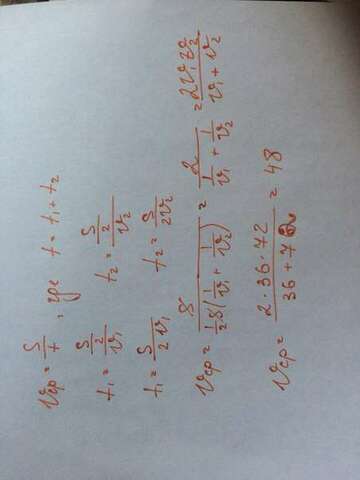 vср = S/t , где t = t₁ + t₂
t₁ = (S/2)/v₁   t₂ = (S/2)/v₂
t₁ = S/2v₁   t₂ = S/2v₂
vср = S/(½S(1/v₁ + 1/v₂)) = 2/(1/v₁ + 1/v₂) = 2v₁v₂/(v₁ + v₂)
vср = 2·36·72/(36 + 72) = 48